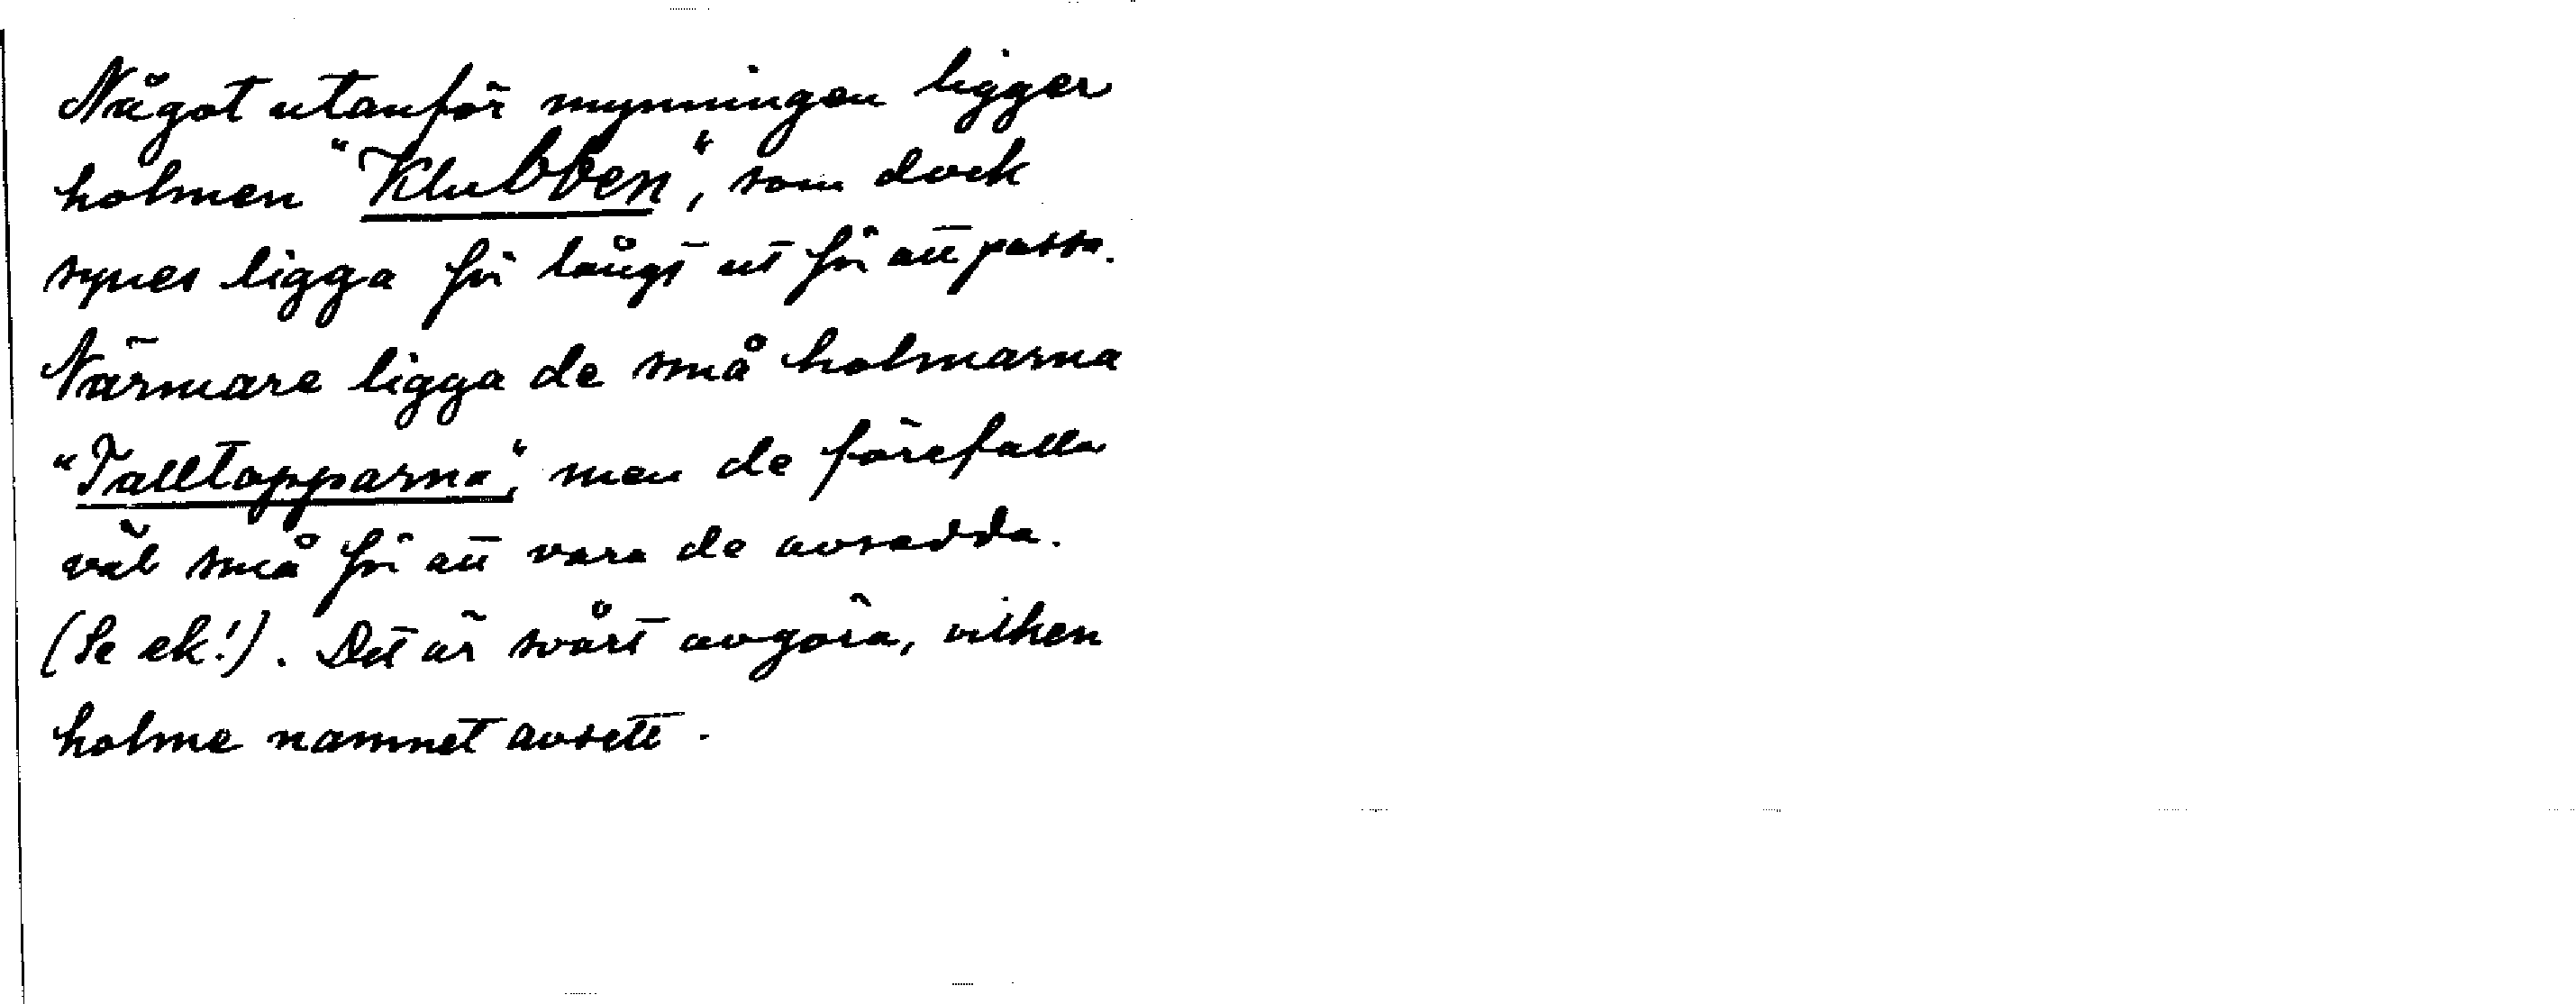 Något utanför mynningen ligger
holmen "Klubben", som dock
synes ligga för långt ut för att passa.
Närmare ligga de små holmarna
"Talltopparna", men de förefalla
väl små för att vara de avsedda.
(Se ek!). Det är svårt avgöra, vilken
holme namnet avsett.